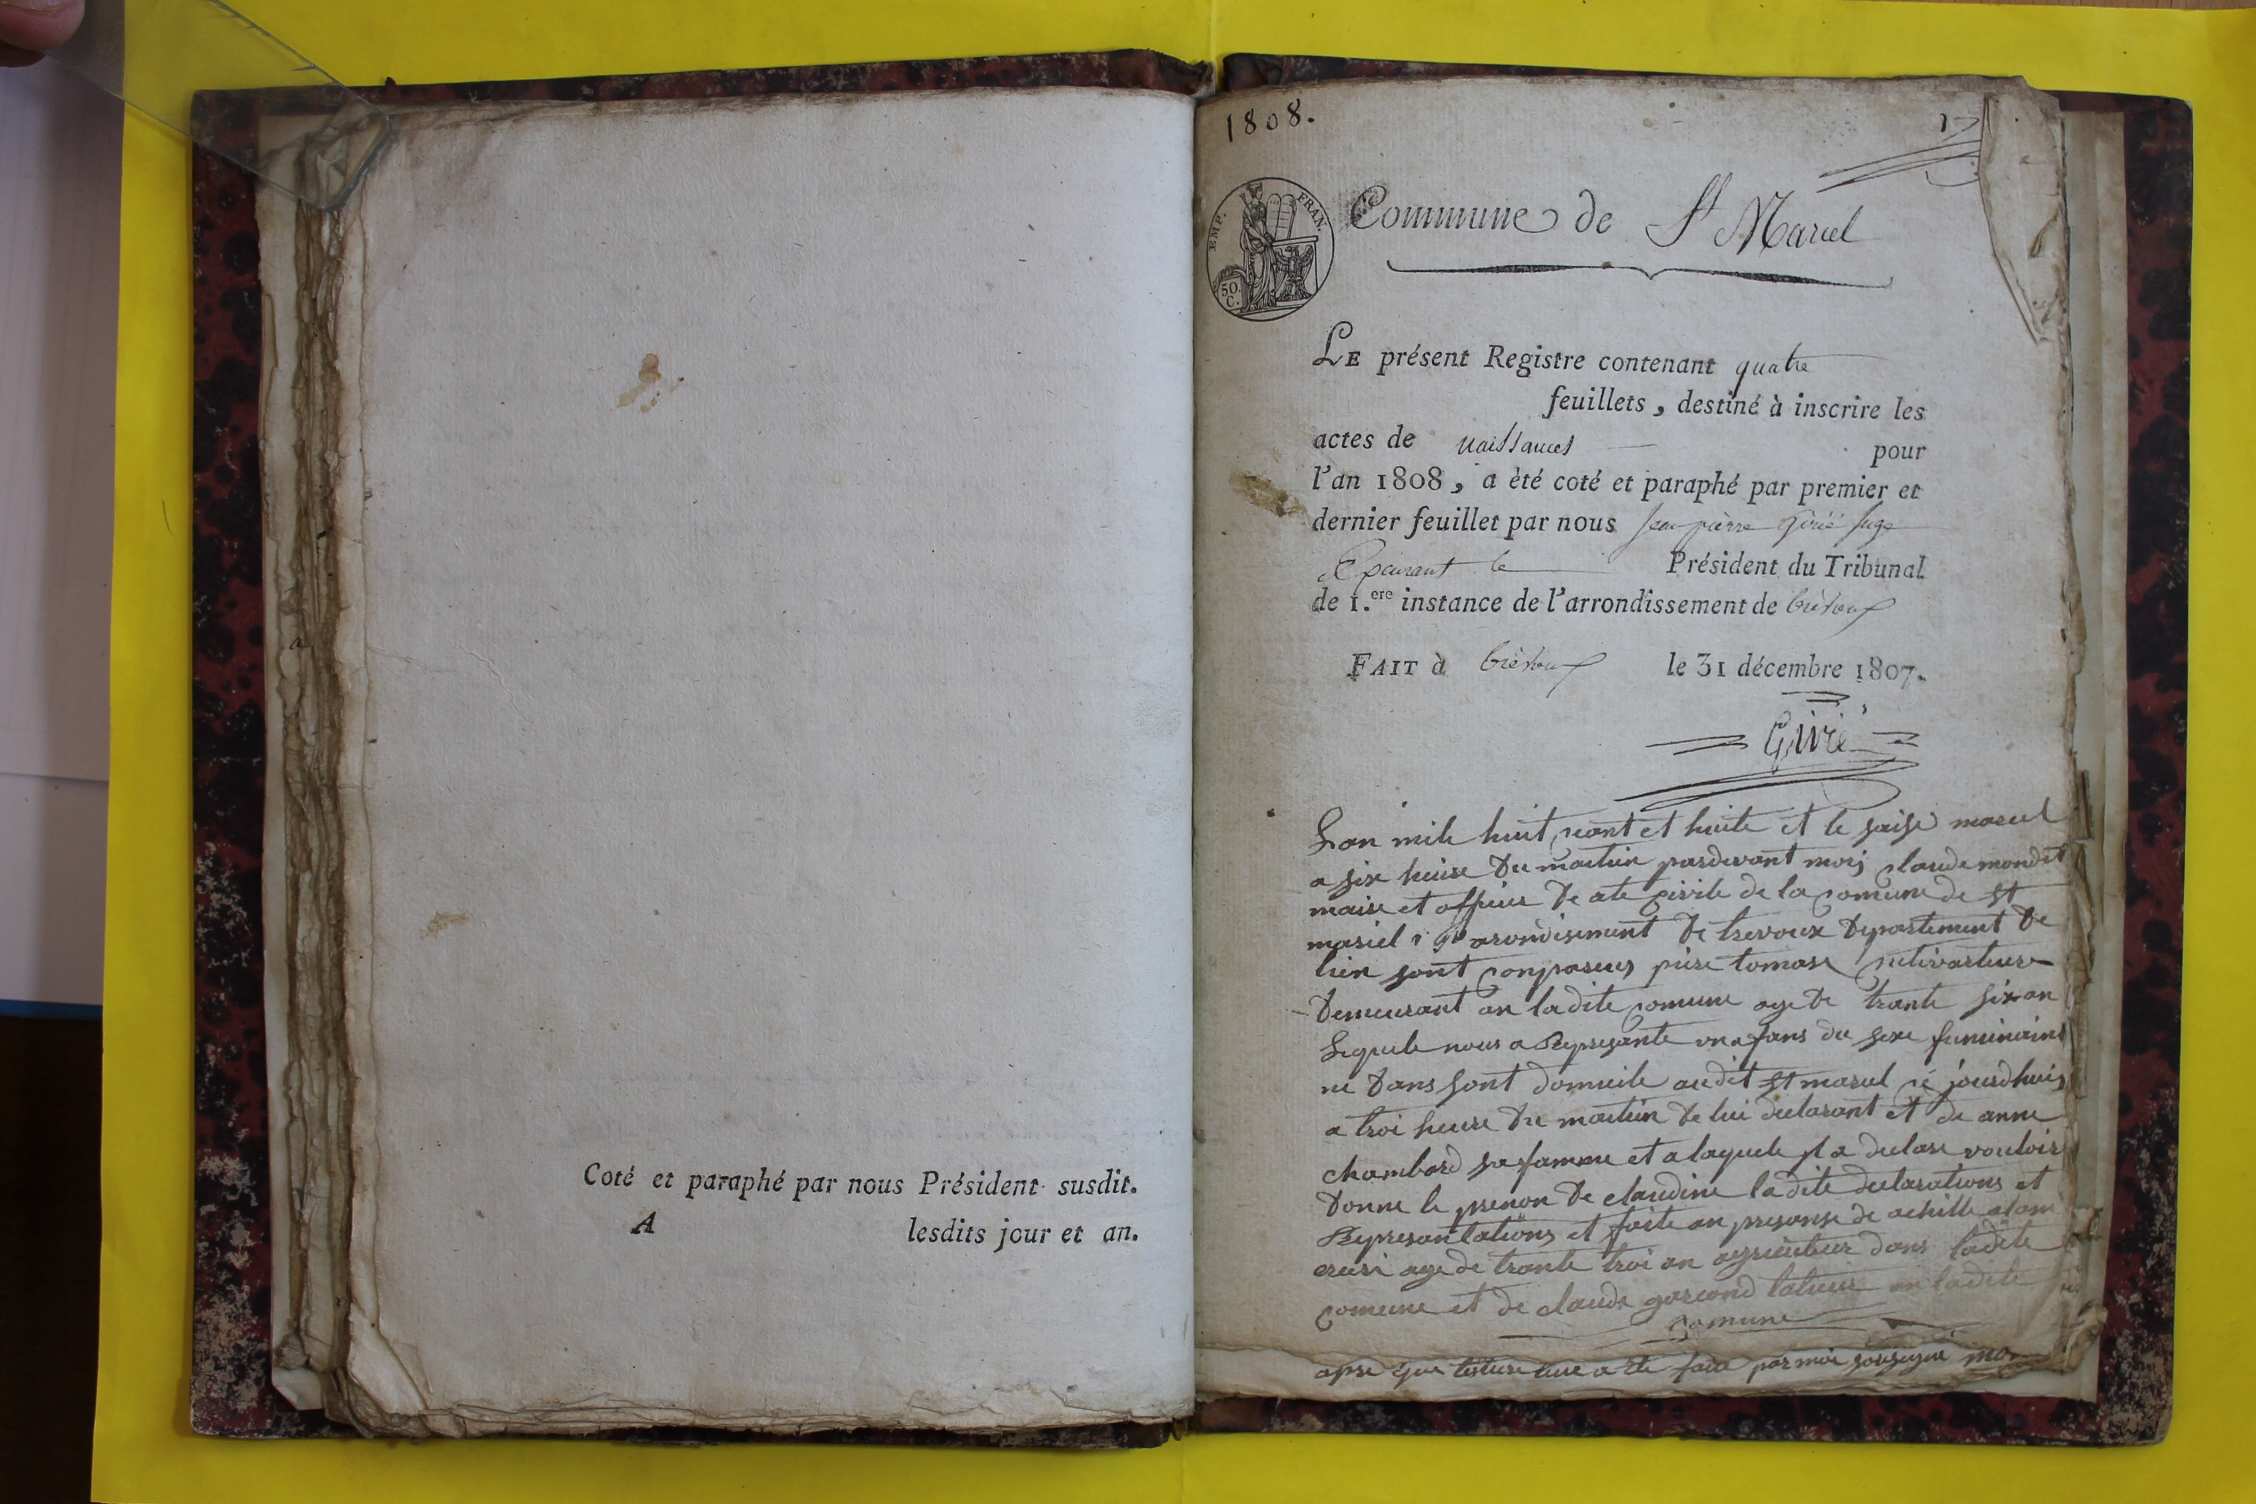 Coté et paraphé par nous Président susdit.
A lesdits jour et an.
1808.
1
EMP. FRAN.
50
C.
Commune de St Marcel
LE présent Registre contenant quatre
feuillets, destiné à inscrire les
actes de naissances pour
l'an 1808, a èté coté et paraphé par premier et
dernier feuillet par nous Jean pierre Girié Juge
Président du Tribunal
de 1.ere instance de l'arrondissement de trévoux
FAIT à trévoux le 31 décembre 1807.
Girié
Lan mile huit cant et huite et le saise marcel
a six heure Du matuin pardevant moij claude mondet
maire et officier De ate civile de la comune de st
marcel arondisement De trevoux Departement De
lein sont conparus piere tomase cultivarteur
Demeurant an ladite comune age De trante six an
Lequele nous a Represante un anfans du sexe femininins
ne Dans sont domicile audit st marcel cé jourdhuij
a troi heure Du matuin De lui declarant et de anne
chambard sa famme et a laquele il a declare vouloir
Donne le prenon De claudine ladite declarations et
Represantations et faite an presanse de achille adam
age de trante troi an agriculteur dans ladite
comune et de claude garcond an ladite
comune
apre que lecture leur a ete faite par moi sousigné